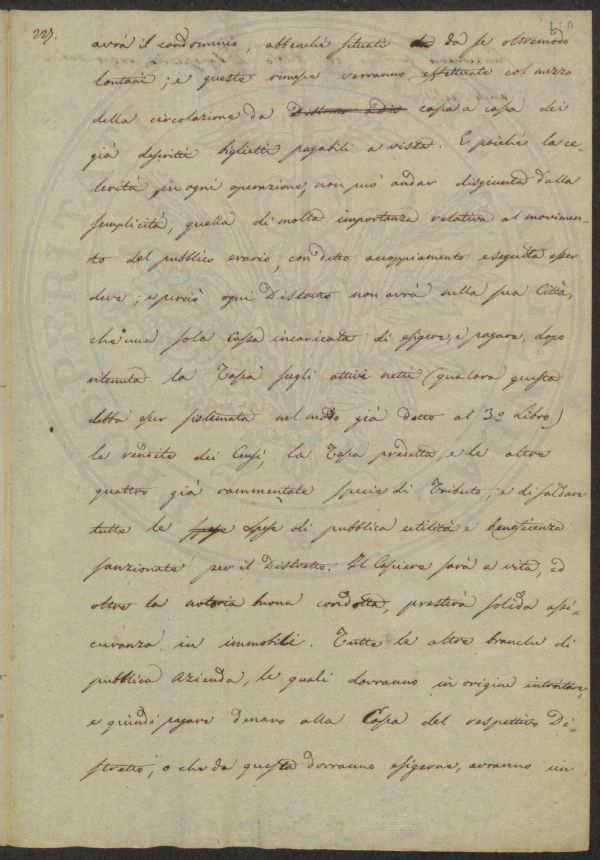 227.
avrà il condominio, abbenchè situati da se oltremodo
lontani; e queste rimesse verranno effettuate col mezzo
della circolazione da cassa a cassa dei
già descritti biglietti pagabili a vista. E poichè la ce-
lerità, in ogni operazione, non può andar disgiunta dalla
semplicità, quella di molta importanza relativa al movimen-
to del pubblico erario, con detto accoppiamento eseguita esser
deve; e perciò ogni Distretto non avrà nella sua Città,
che una sola Cassa incaricata di esigere, e pagare, dopo
ritenuta la Tassa sugli attivi netti (qualora questa
debba esser sistemata nel modo già detto al 3.o Libro)
le rendite dei Censi, la Tassa predetta, e le altre
quattro già rammentate specie di Tributo; e di saldare
tutte le spese di pubblica utilità e beneficenza
sanzionate per il Distretto. Il Cassiere sarà a vita, ed
oltre la notoria buona condotta, presterà solida assi-
curanza in immobili. Tutte le altre branche di
pubblica Azienda, le quali dovranno in origine introitare,
e quindi pagare denaro alla Cassa del respettivo Di-
stretto, o che da questa dovranno esigerne, avranno un